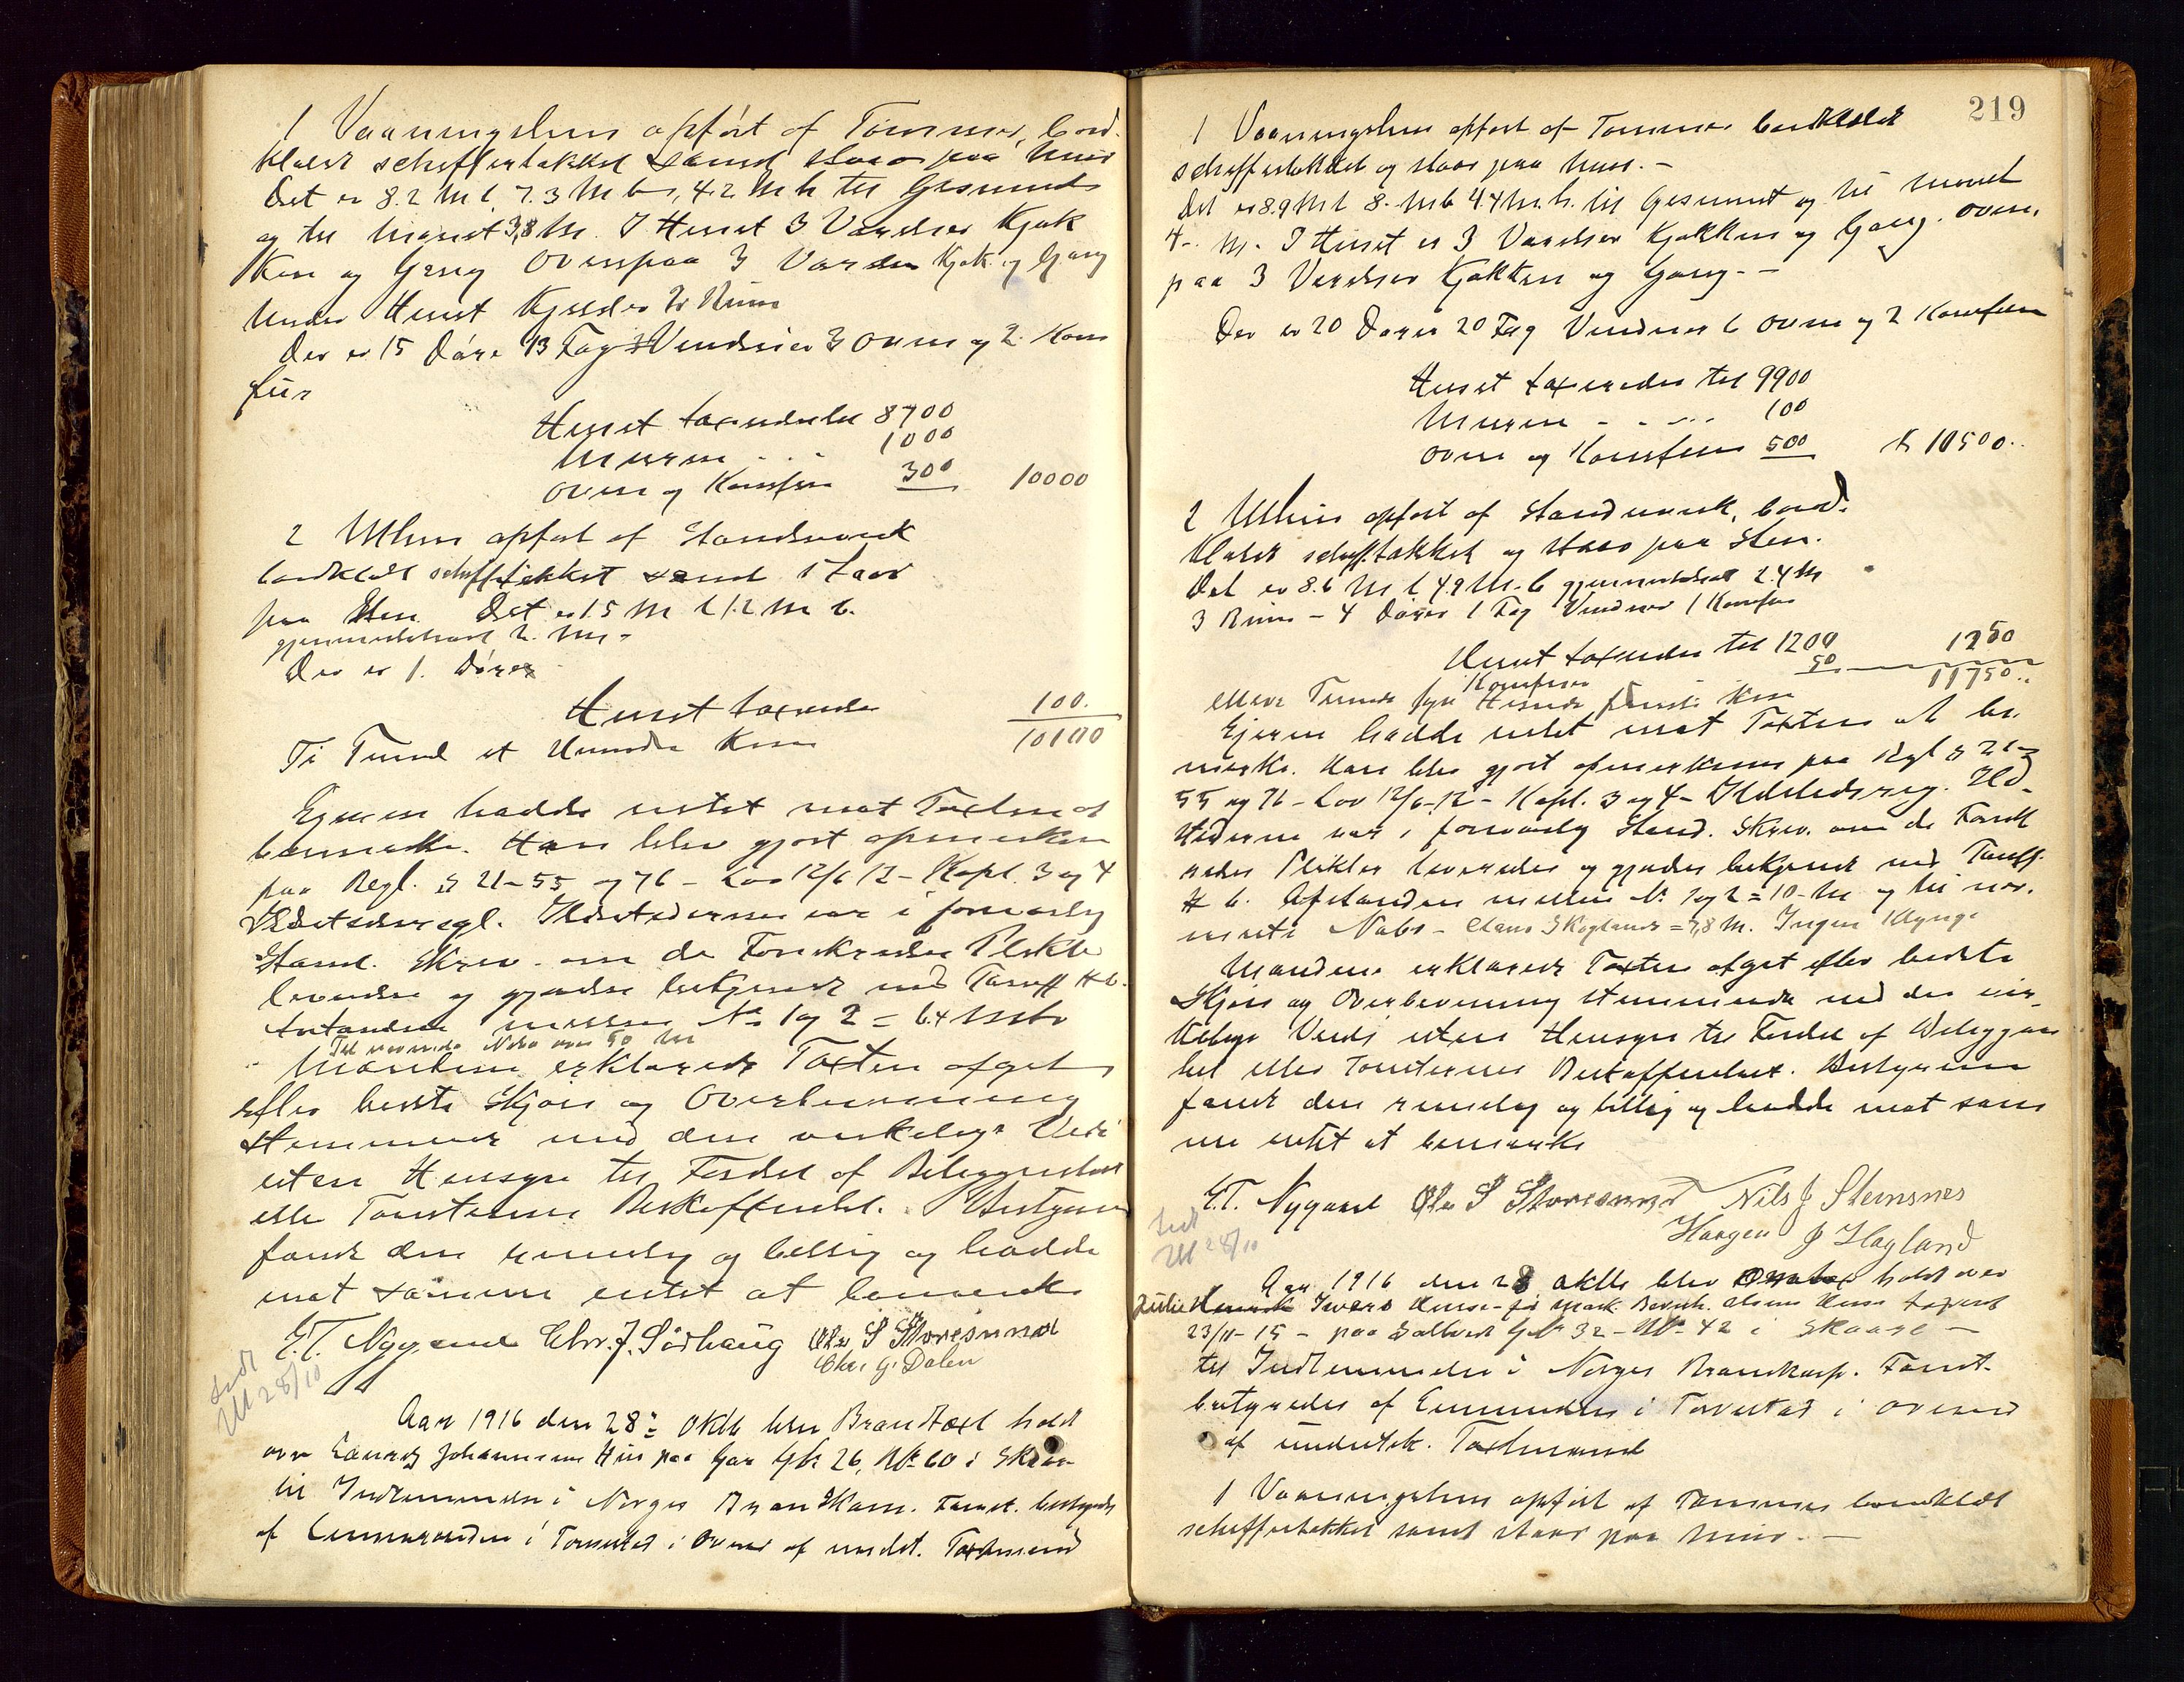 1 Vaaningshus opført af Tømmer, bord-
klædt schiffertækket samt staar paa Mur
Det er 8.2 M l, 7.3 M b, 4.2 M h til Gesims
og til Mønet 3,8 M. I Huset 3 Værelser Kjøk
ken og Gang Ovenpaa 3 Værelser Kjøk. og Gang
under Huset Kjelder 2 Rum
Der er 15 Døre 13 Fag Vinduer 3 Ovne og 2 Kom
fur
Huset taxeredes til 8700
Muren . . . 1000
Ovne og Komfur 300 10000
2 Uthus opført af Standverk
bordklædt schiffertækket samt staar
paa Sten Det er 1.5 M l 1.2 M b.
gjennemsnitshøit 2. M.
Der er 1. Dører
Huset taxeredes 100.
Ti Tusind et Hundre Kroner 10100
Ejeren hadde intet mot Taxten at
bemerke. Han blev gjort opmerksom
paa Regl. § 21-55 og 76 - Lov 12/6 12 - Kapl. 3 og 4
Ildstedsregl. Ildstederne var i forsvarlig
Stand. Skrev. om de Forsikredes Plikter
leveredes og gjordes bekjendt med Tariff H b.
Avstanden mellem No 1 og 2 = 6.4 Meter
Til nærmeste Nabo over 50 Mtr
Mændene erklærede Taxten afget
efter bedste Skjøn og Overbevisning
stemmende med den verkelige Verdi
uten Hensyn til Fordel af Beliggenhed
eller Tomternes Beskaffenhet. Bestyreren
fandt den rimelig og billig og hadde
mot samme intet at bemerke
E.T. Nygaard Chr. J. Sørhaug Ole S Storesund
Chr. G. Dalen
Indt
Ut 28/10
Aar 1916 den 28de Oktb blev Brandtaxt holdt
over Laurits Johannesens Hus paa Gar Gb 26, No 60 i Skaare
til Indlemmelse i Norges Brandkasse. Forret. bestyredes
af Lensmanden i Torvestad i Overvær af undert. Taxtmænd
219
1 Vaaningshus opført af Tømmer bordklædt
schiffertækket og staar paa Mur. -
Det er 8.9 M l 8. M b 4.4 M. h. til Gesimset og til Mønet
4. M. I Huset er 3 Værelser Kjøkken og Gang. Oven.
paa 3 Værelser Kjøkken og Gang. -
Der er 20 Dører 20 Fag Vinduer 6 Ovne og 2 Komfur
Huset taxeredes til 9900
Muren - - ... 100
Ovne og Komfur 500 Kr 10500..
2 Uthus opført af Standverk, bord.
klædt schiff.tækket og staar paa Sten.
Det er 8.6 M l 4.9 M. b gjennemsnitshøit 2.4 M
3 Rum - 4 Dører 1 Fag Vinduer 1 Komfur
Huset taxeredes til 1200
Komfuren 50 1250
11750..
Elleve Tusinde syv Hundre femti Kroner
Ejeren hadde intet mot Taxten at be.
merke. Han blev gjort opmerksom paa Regl § 21-
55 og 76 - Lov 12/6-12 - Kapl. 3 og 4 - Ildstedsreg. Ild.
stederne var i forsvarlig Stand. Skrev. om de Forsik
redes Plikter leveredes og gjordes bekjendt med Tariff.
H b. Afstanden mellem No 1 og 2 = 10 - M og til nær.
meste Nabo - Claus Skoglands = 7,8 M. Ingen Klynge
Mændene erklærede Taxten afget efter bedste
Skjøn og Overbevisning stemmende med den vir-
kelige Verdi uten Hensyn til Fordel af Beliggen
het eller Tomternes Beskaffenhet. Bestyreren
fandt den rimelig og billig og hadde mot sam
me intet at bemerke
E.T. Nygaard Ole S Storesund Nils J Steinsnes
Haagen J Hagland
Indt
Ut 28/10
Aar 1916 den 28 oktb blev holdt over
Julie Ivers Huse
23/11-15 - paa Solbert Gb 32 - No 42 i Skaare -
til Indlemmelse i Norges Brandkasse. Forret.
bestyredes af Lensmanden i Torvestad i Overvær
af undertek. Taxtmænd
1 Vaaningshus opført af Tømmer bordklædt
schiffertækket samt staar paa Mur. -